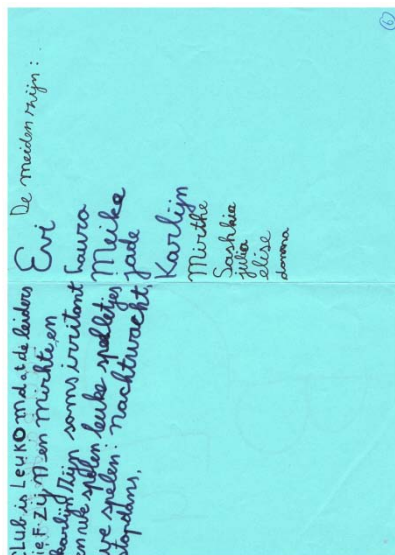 CLub is LeuKOmdat de leiders
lieF Zijn en mirhte en
karlijn zijn soms irritant
en we spelen leuke spelletjes
we spelen: nachtwacht,
stopdans,
De meiden zijn:
Evi
Laura
Meike
jade
Karlijn
Mirthe
Sashkia
julia
elise
donna
6